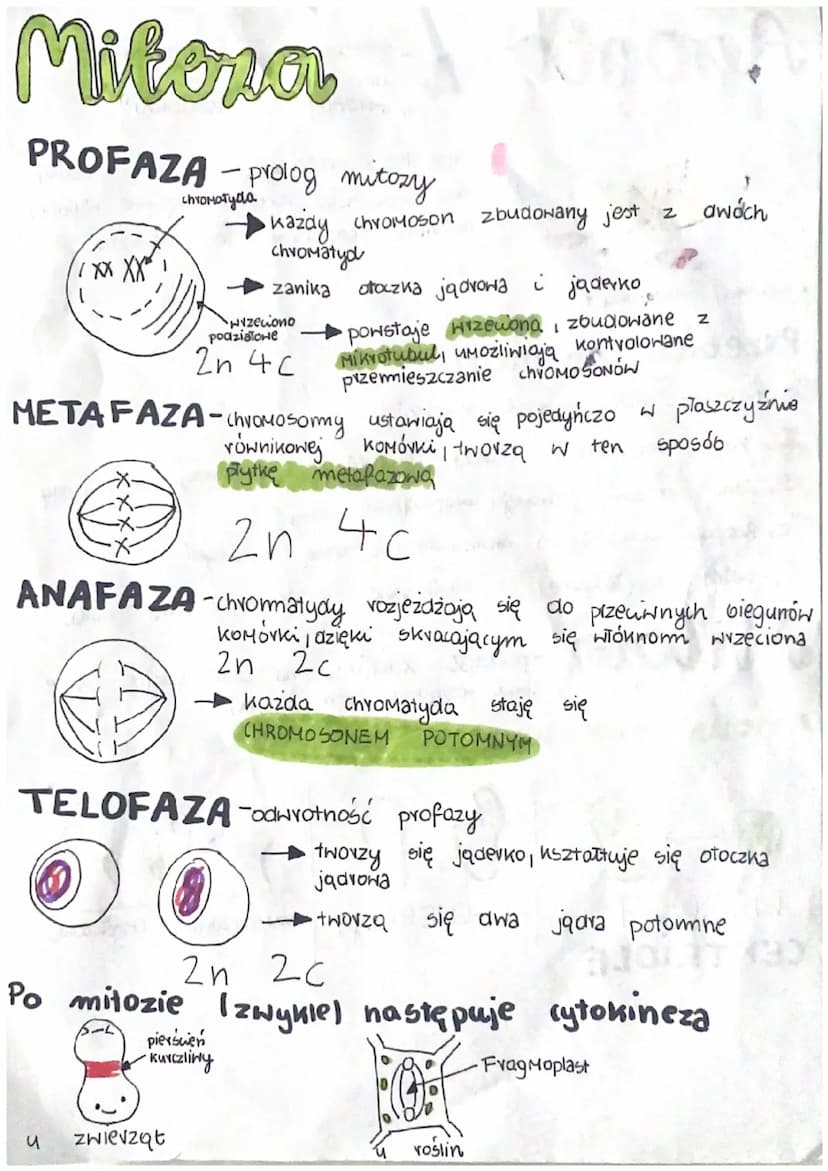 Mitoza
PROFAZA - prolog mitozy
chromatyda
→ każdy chromoson zbudowany jest z dwóch
chromatyd
XX XX
→ zanika otoczka jądrowa i jąderko
wrzeciono
podziałowe
→ powstaje wrzeciona, zbudowane z
mikrotubul, umożliwiają kontrolowane
przemieszczanie chromosonów
2n 4c
METAFAZA - chromosomy ustawiają się pojedyńczo w płaszczyźnie
równikowej komórki, tworzą w ten sposób
płytkę metafazową
2n 4c
ANAFAZA - chromatydy rozjeżdżają się do przeciwnych biegunów
komórki, dzięki skracającym się włóknom wrzeciona
2n 2c
→ każda chromatyda staję się
CHROMOSONEM POTOMNYM
TELOFAZA - odwrotność profazy
→ tworzy się jąderko, kształtuje się otoczka
jądrowa
→ tworzą się dwa jądra potomne
2n 2c
Po mitozie (zwykle) następuje cytokineza
pierścień
kurczliwy
Fragmoplast
u zwierząt
u roślin